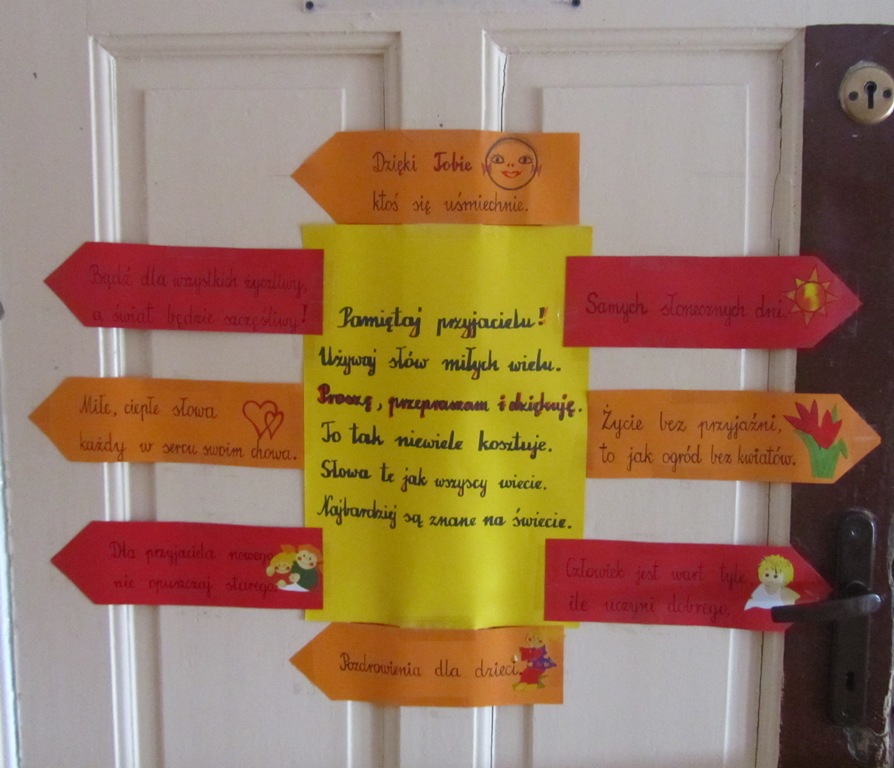 Dzięki Tobie
ktoś się uśmiechnie.
Bądź dla wszystkich życzliwy,
a świat będzie szczęśliwy!
Miłe, ciepłe słowa
każdy w sercu swoim chowa.
Dla przyjaciela nowego
nie opuszczaj starego.
Pamiętaj przyjacielu!
Używaj słów miłych wielu.
Proszę, przepraszam i dziękuję.
To tak niewiele kosztuje.
Słowa te jak wszyscy wiecie.
Najbardziej są znane na świecie.
Samych słonecznych dni.
Życie bez przyjaźni,
to jak ogród bez kwiatów.
Człowiek jest wart tyle,
ile uczyni dobrego.
Pozdrowienia dla dzieci.